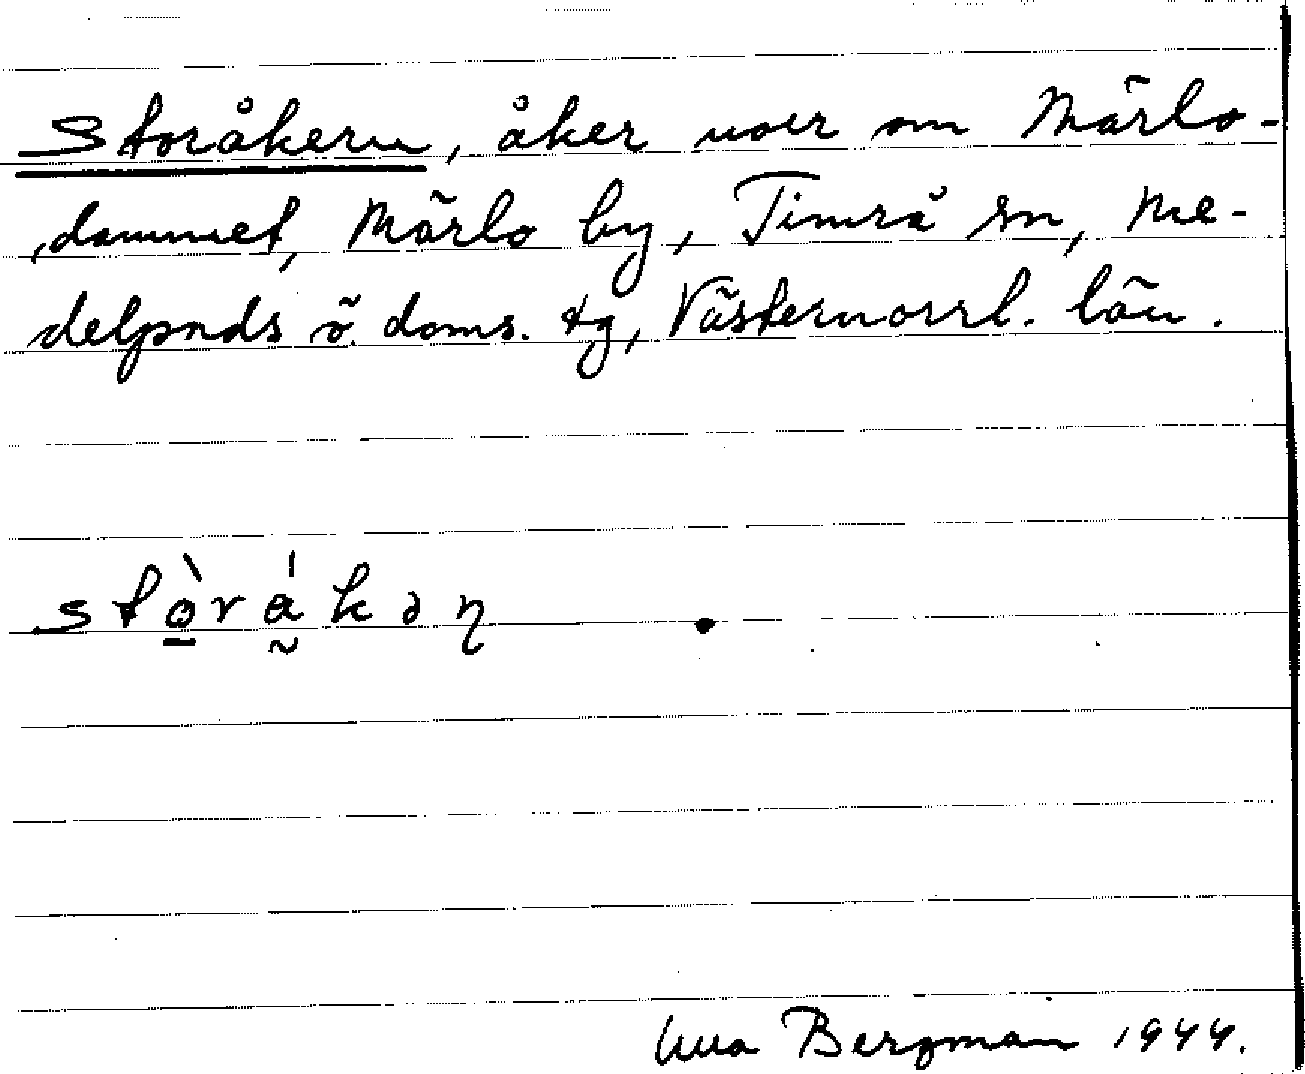 Storåkern, åker norr om Märlo-
dammet, Märlo by, Timrå sn, Me-
delpads ö. doms. tg, Västernorrl. län.
stò̱rá̰kəɳ
Bergman 1944.